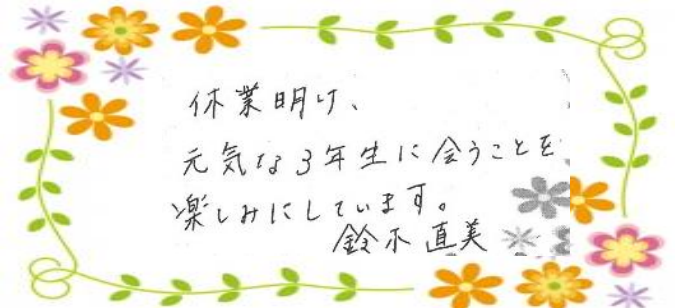 休業明け、
元気な3年生に会うことを
楽しみにしています。
鈴木直美